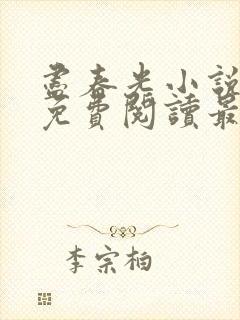 盡春光小說
免費閱讀最
李宗柏